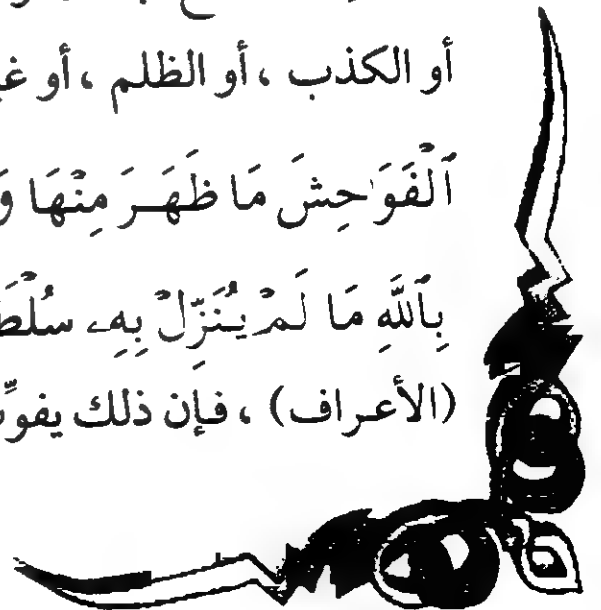 أو الكذب ، أو الظلم ، أو
ٱلْفَوَٰحِشَ مَا ظَهَرَ مِنْهَا
بِٱللَّهِ مَا لَمْ يُنَزِّلْ بِهِۦ
(الأعراف) ، فإن ذلك